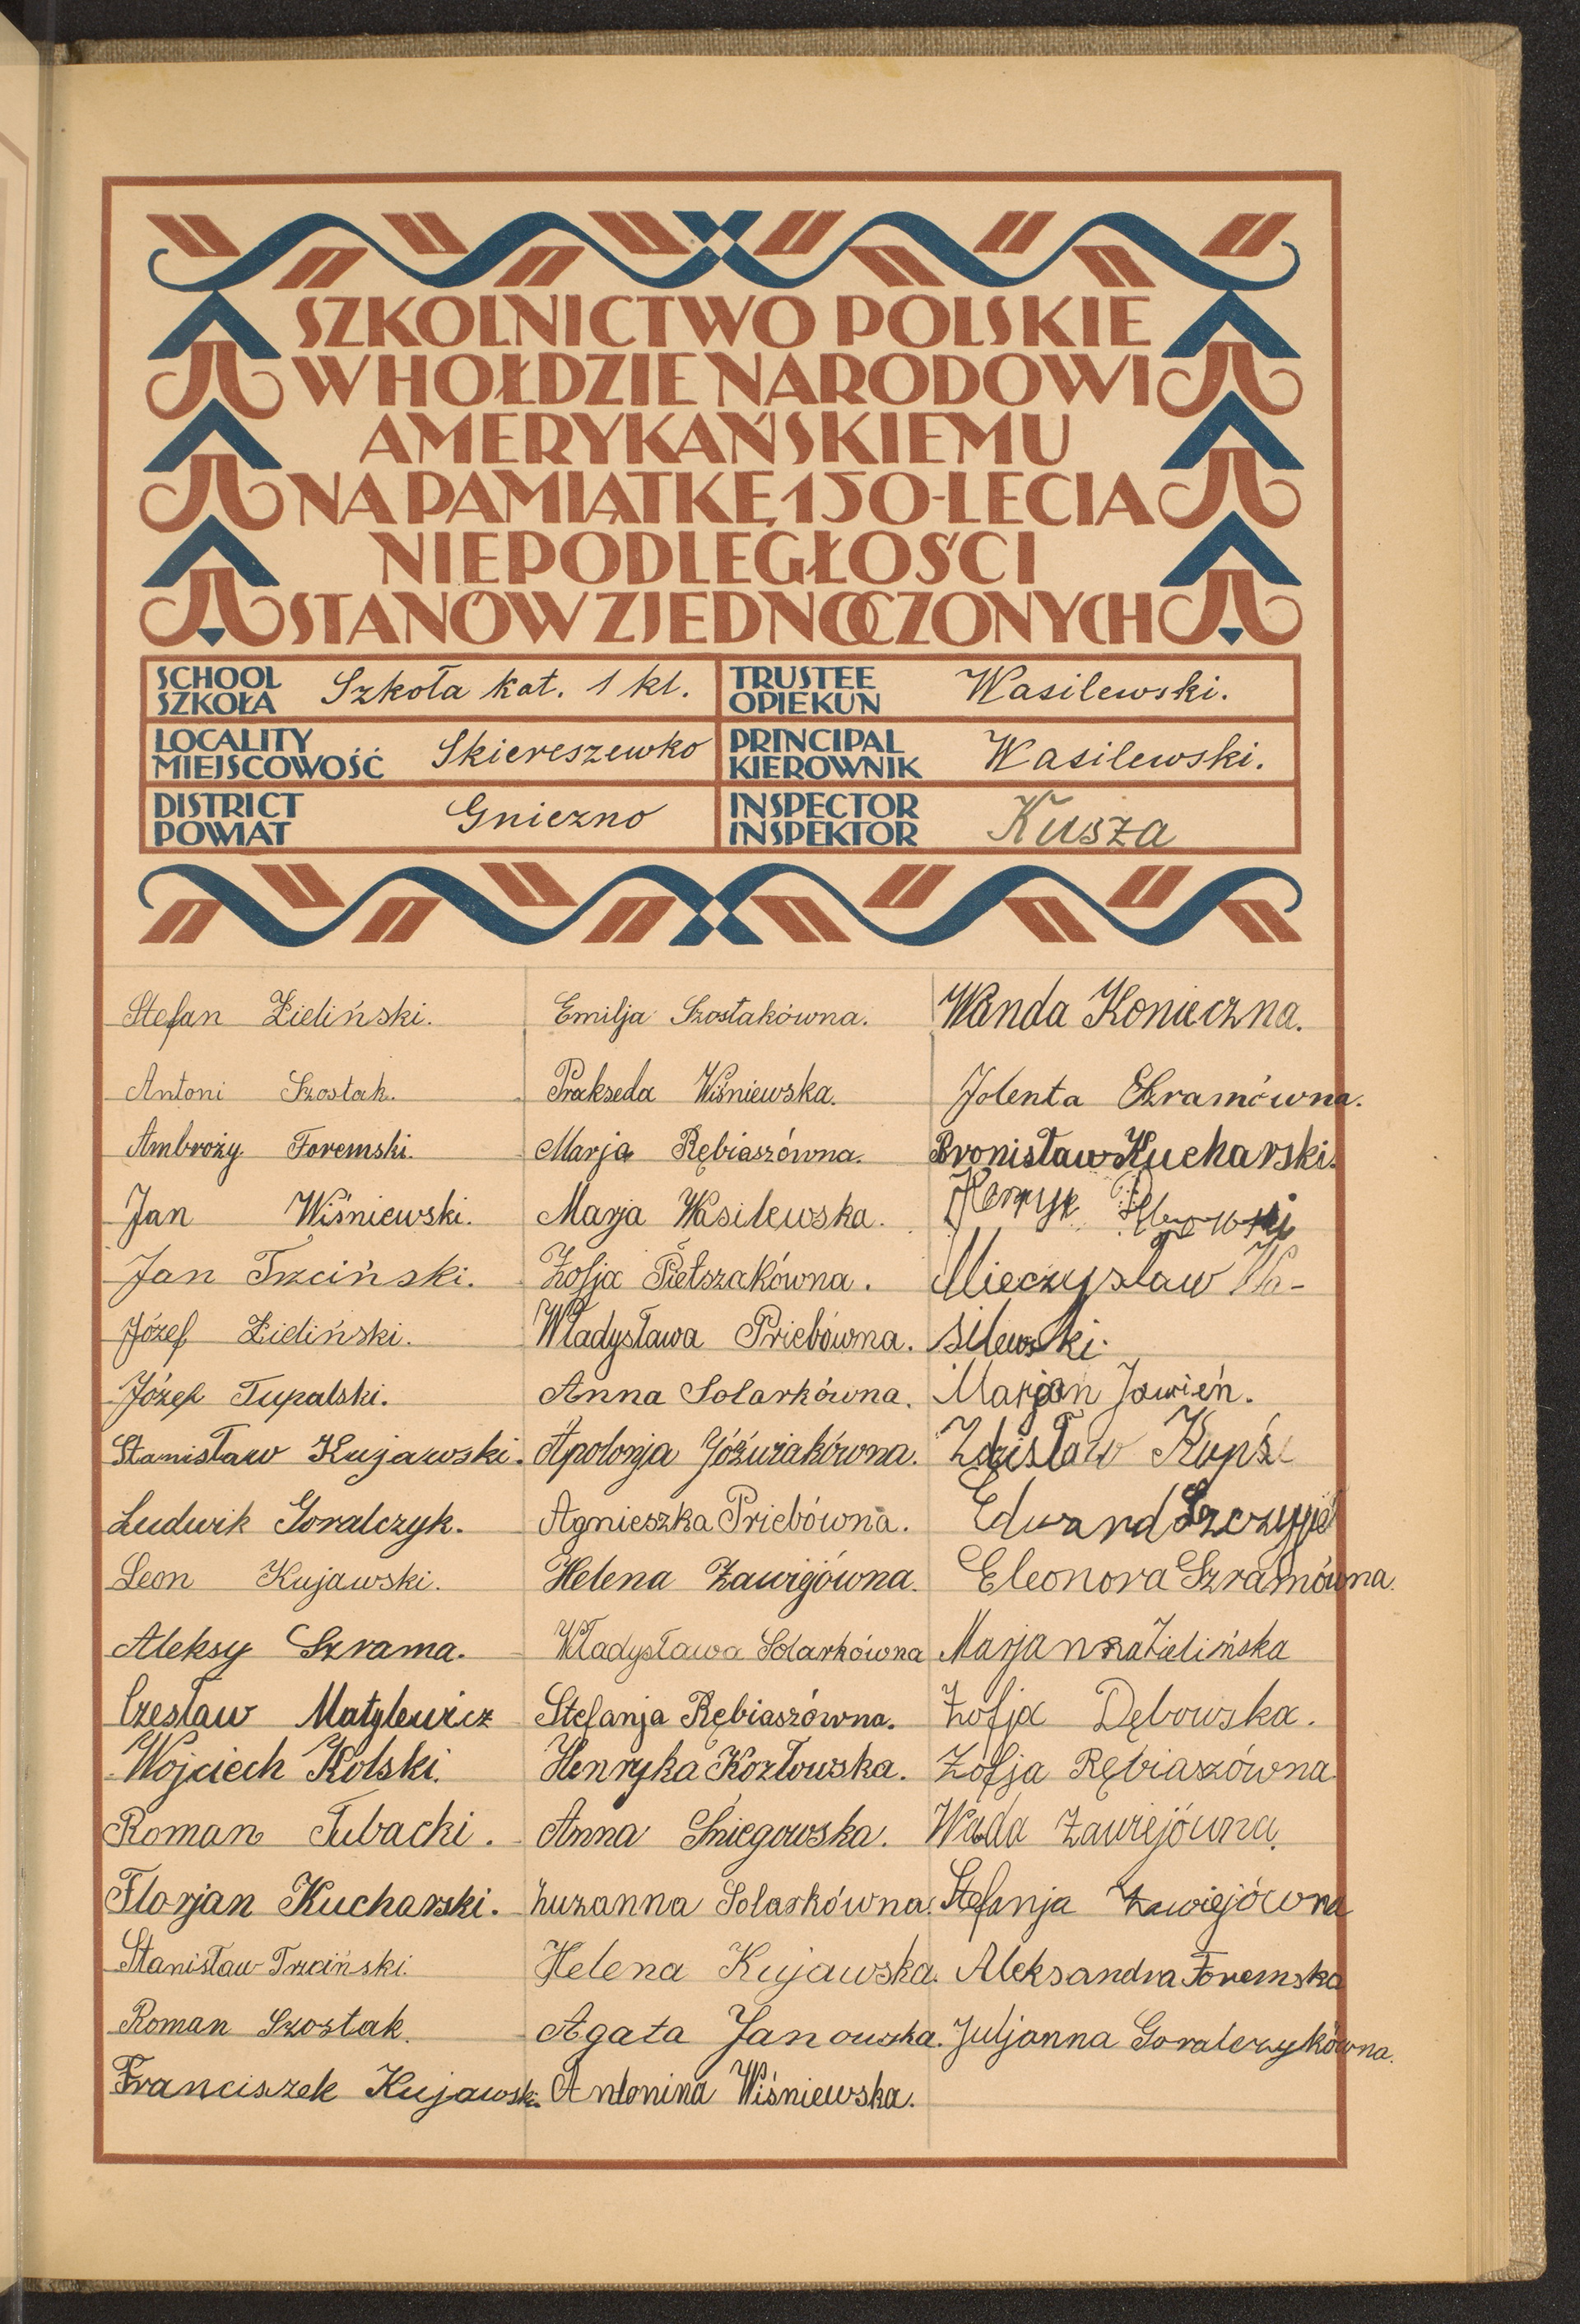 SZKOLNICTWO POLSKIE
W HOŁDZIE NARODOWI
AMERYKAŃSKIEMU
NA PAMIĄTKĘ 150-LECIA
NIEPODLEGŁOŚCI
STANÓW ZJEDNOCZONYCH
SCHOOL
SZKOŁA
Szkoła kat. 1 kl.
TRUSTEE
OPIEKUN
Wasilewski.
LOCALITY
MIEJSCOWOŚĆ
Skiereszewko
PRINCIPAL
KIEROWNIK
Wasilewski.
DISTRICT
POWIAT
Gniezno
INSPECTOR
INSPEKTOR
Kusza
Stefan Zieliński.
Antoni Szostak.
Ambroży Foremski.
Jan Wiśniewski.
Jan Trzciński.
Józef Zieliński.
Józef Tupalski.
Stanisław Kujawski.
Ludwik Goralczyk.
Leon Kujawski.
Aleksy Szrama.
Czesław Matylewicz
Wojciech Kolski.
Roman Tubacki.
Florjan Kucharski.
Stanisław Trzciński.
Roman Szostak.
Franciszek Kujawski.
Emilja Szostakówna.
Prakseda Wiśniewska.
Marja Rębiaszówna.
Marja Wasilewska.
Zofja Pietszakówna.
Władysława Priebówna.
Anna Solarkówna.
Apolonja Jóźwiakówna.
Agnieszka Priebówna.
Helena Zawijówna.
Władysława Solarkówna
Stefanja Rębiaszówna.
Henryka Kozłowska.
Anna Śniegowska.
Zuzanna Solarkówna.
Helena Kujawska.
Agata Janowska.
Antonina Wiśniewska.
Wanda Konieczna.
Jolenta Szramówna.
Bronisław Kucharski.
Henryk
Mieczysław Wa-
silewski.
Marjan Jawień.
Zdzisław
Edward
Eleonora Szramówna.
Marjanna Zielińska
Zofja Dębowska.
Zofja Rębiaszówna
Wada Zawiejówna.
Stefanja Zawiejówna
Aleksandra Foremska
Juljanna Goralczykówna.